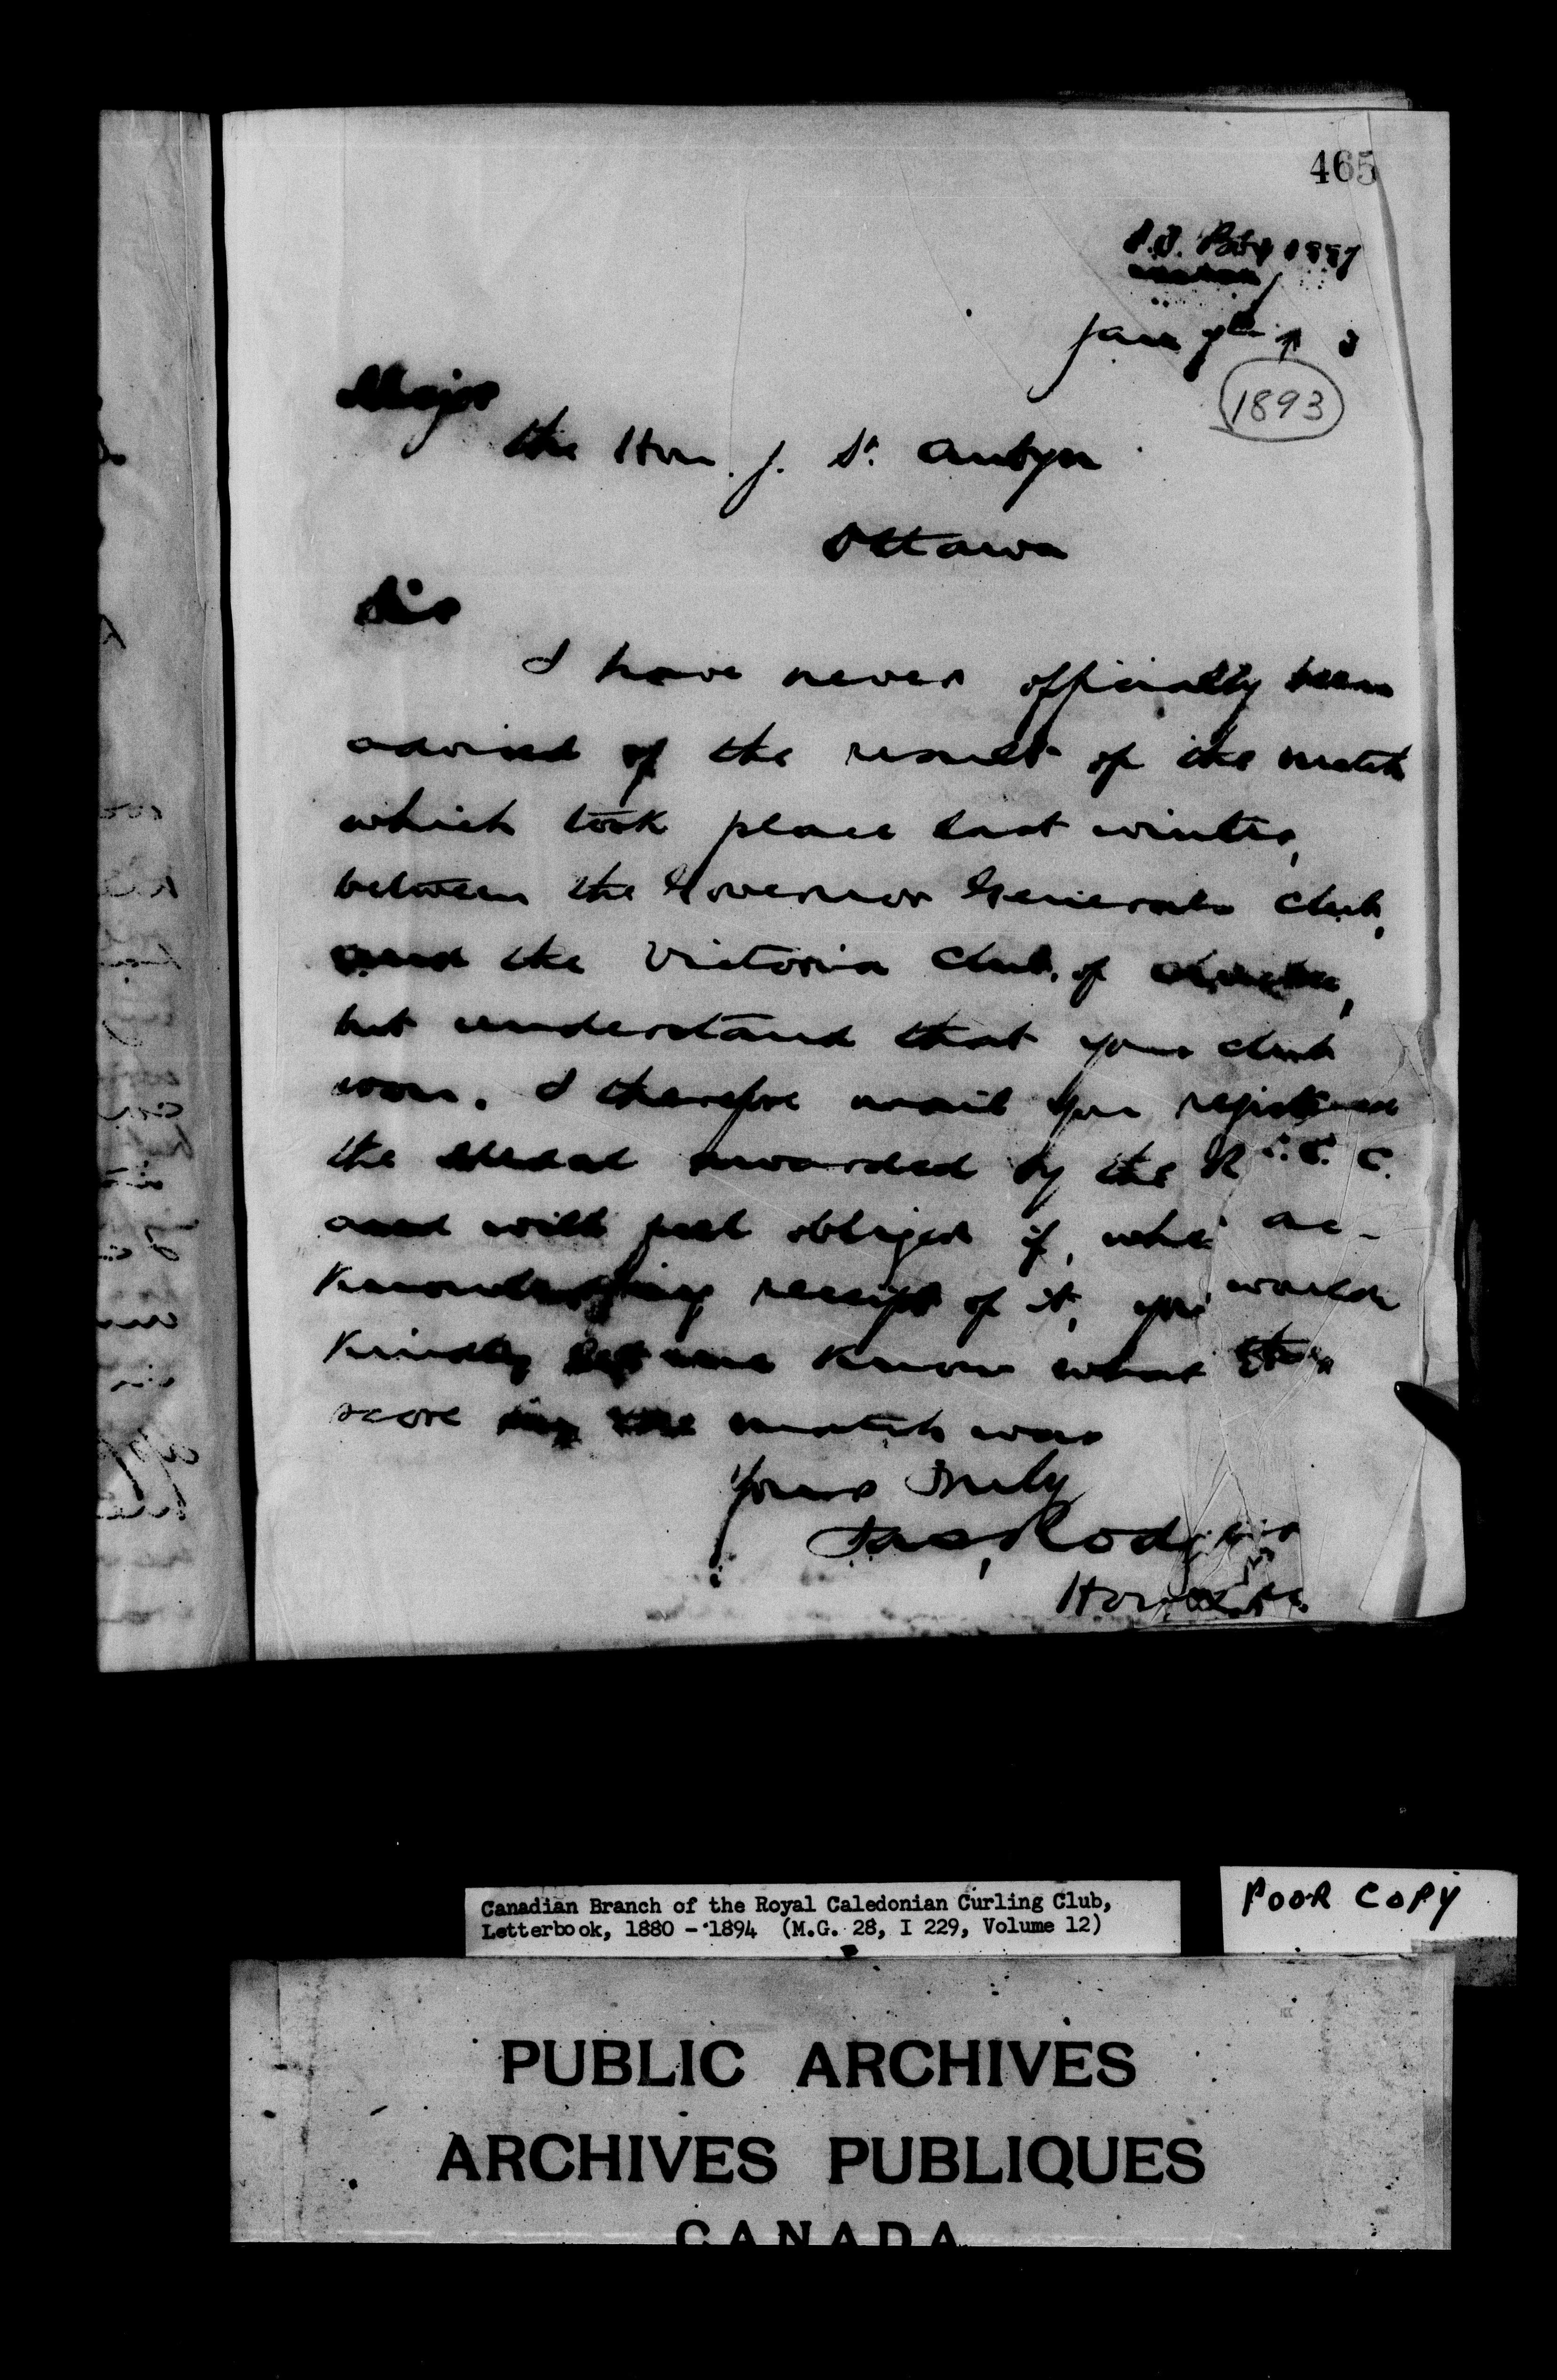 465
Jany 7th 3
1893
Major
the Hon. J. St. Aubyn
Ottawa
Sir
I have never officially been
advised of the result of the match
which took place last winter,
between the Governor Generals Club,
and the Victoria Club, of
but understand that your club
won. I therefore mail you registered
the Medal awarded by the R. C. C. C.
and will feel obliged if, when ac-
knowledging receipt of it, you would
kindly let me know what the
score in the match was
Yours Truly
Jas, Rodgers
Canadian Branch of the Royal Caledonian Curling Club,
Letterbook, 1880 - 1894 (M.G. 28, I 229, Volume 12)
POOR COPY
PUBLIC ARCHIVES
ARCHIVES PUBLIQUES
CANADA